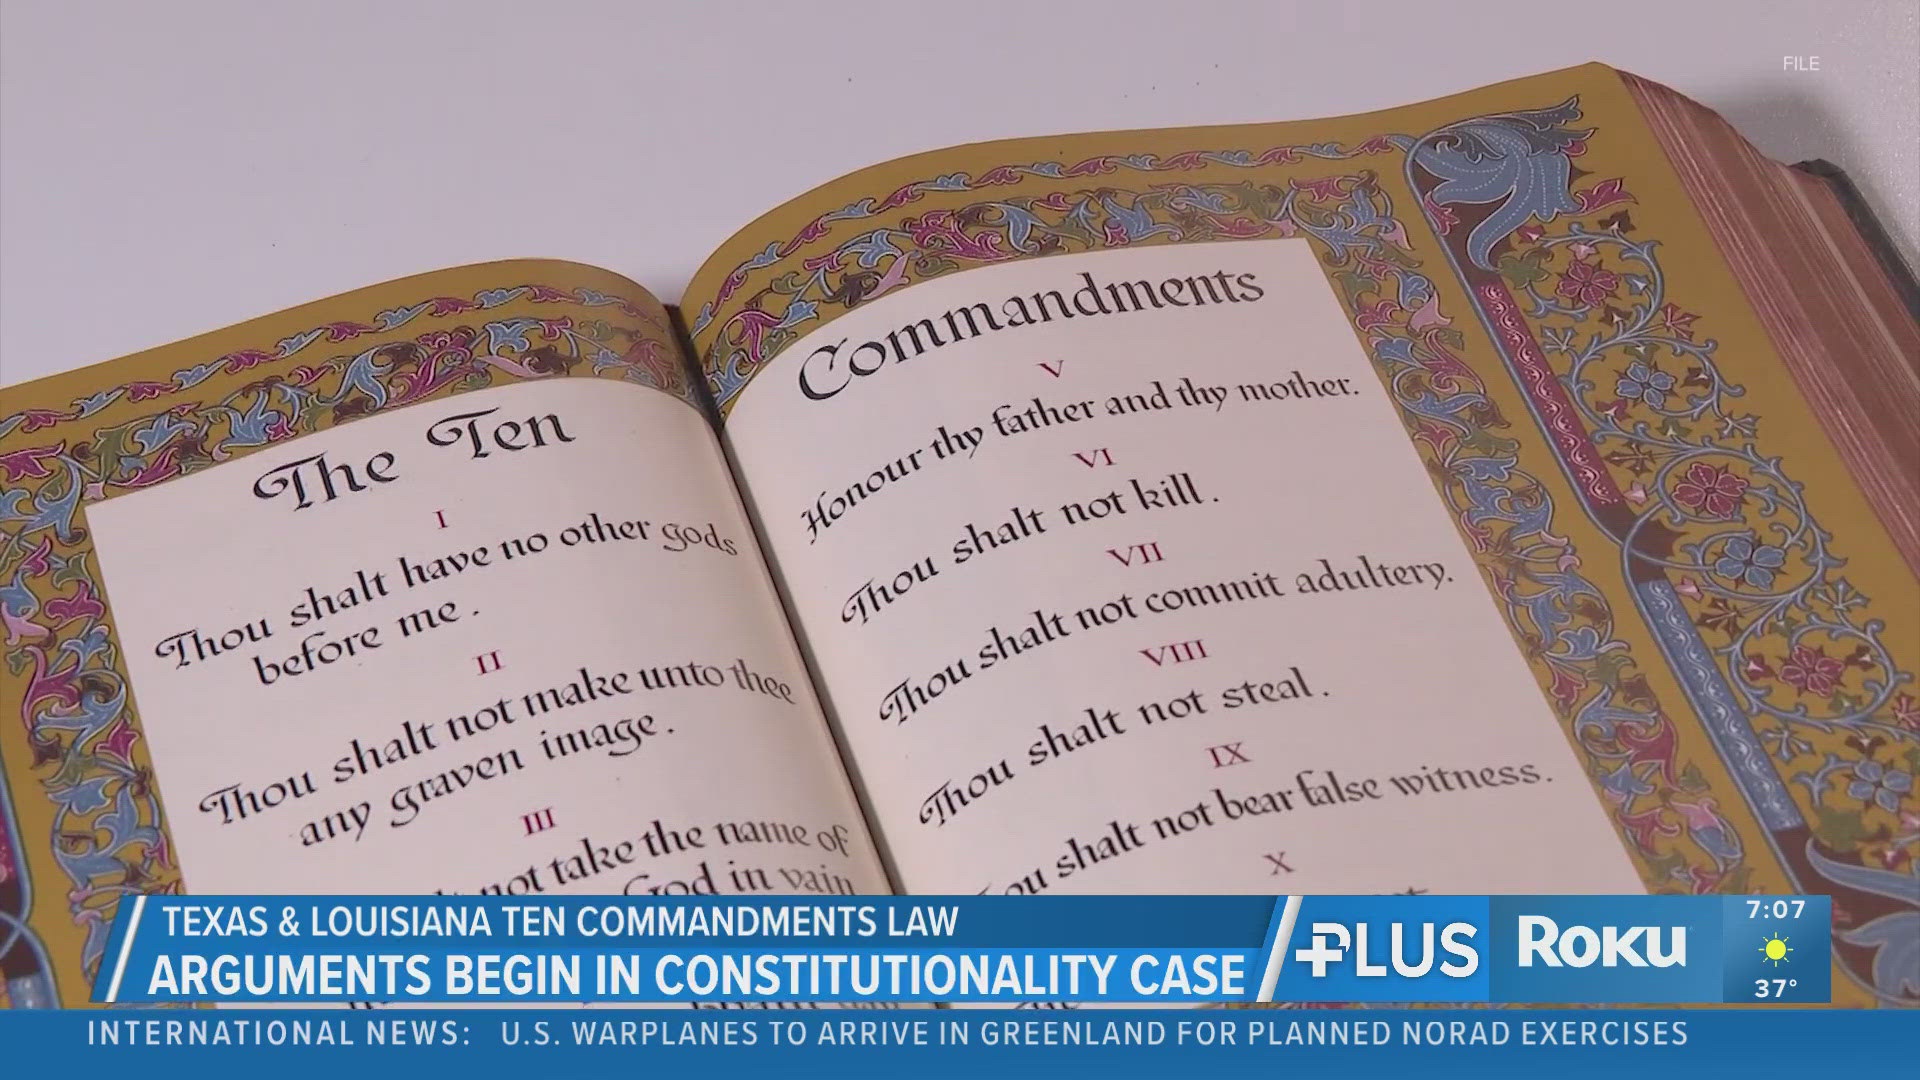 FILE
The Ten
I
Thou shalt have no other gods
before me.
II
Thou shalt not make unto thee
any graven image.
III
not take the name of
God in vain
Commandments
V
Honour thy father and thy mother.
VI
Thou shalt not kill.
VII
Thou shalt not commit adultery.
VIII
Thou shalt not steal.
IX
shalt not bear false witness.
X
TEXAS & LOUISIANA TEN COMMANDMENTS LAW
ARGUMENTS BEGIN IN CONSTITUTIONALITY CASE
+PLUS
ROKU
7:07
37°
INTERNATIONAL NEWS: U.S. WARPLANES TO ARRIVE IN GREENLAND FOR PLANNED NORAD EXERCISES